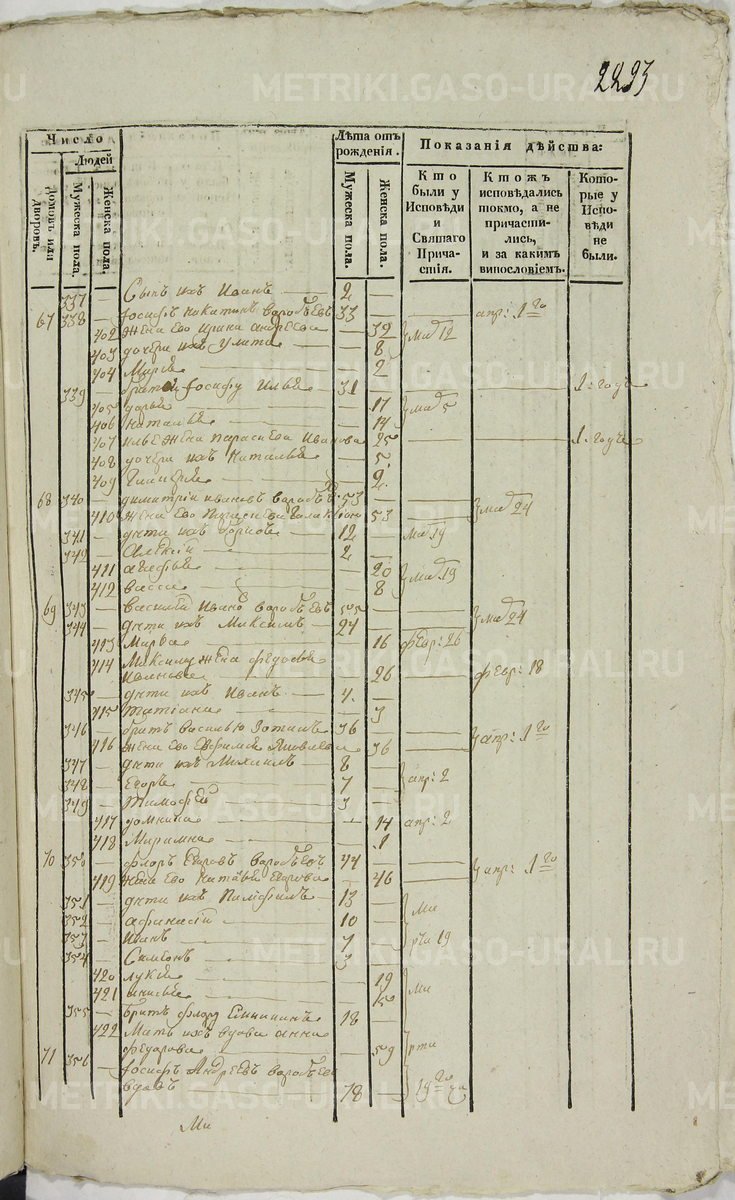 2293
METRIKI.GASO-URAL.RU
Число
Людей
Домовъ или дворовъ.
Мужеска пола.
Женска пола.
Лѣта отъ рожденія.
Мужеска пола.
Женска пола.
Показанія дѣйства:
Кто были у Исповѣди и Святаго Причастія.
Ктожъ исповѣдались токмо, а не причастились, и за какимъ винословіемъ.
Которые у Исповѣди не были.
337 — Сынъ ихъ Иванъ — 2 —
67 338 — Іосифъ Никитинъ Воробьевъ 33 — апр: 1го
402 жена его Ирина Андреева — 32 маія 12
403 дочери ихъ Улита — 8
404 Марья — 2
339 — братъ Іосифу Илья — 31 — 1. годъ
405 Дарья — 17 маія 5
406 Наталья — 14
407 Илье жена Параскева Иванова 25 — 1. годъ
408 дочери ихъ Наталья — 5
409 — 2.
68 340 — Димитрій Ивановъ Воробьев 53 —
410 жена его — 53 маія 24
341 — дѣти ихъ — 12 — маія 19
342 — Алексій — 2 —
411 Агафья — 20 маія 19
412 Васса — 8
69 343 — Василій Ивановъ Воробьевъ 55 —
344 — дѣти ихъ Максимъ — 24 — маія 24
413 Марѳа — 16 февр: 26
414 Максиму жена Федосья
— 26 — февр: 18
345 — дѣти ихъ Иванъ — 4. —
415 Татіана — 3
346 — братъ Василью Зотикъ 36 —
416 жена его Евфимія Яковлева 36 апр: 1го
347 — дѣти ихъ Михаилъ — 8 —
348 — Егоръ — 7 — апр: 2
349 — Тимофей — 3 —
417 Домника — 14 апр: 2
418 Маріамна — 1
70 350 — Флоръ Егоровъ Воробьевъ 44 —
419 жена его Наталья Егорова — 46 апр: 1го
351 — дѣти ихъ Памфилъ — 13 — Ма
352 — Афанасій — 10 —
353 — Иванъ — 7 — рта 19
354 — Симеонъ — 3
420 Лукія — 19
421 — 15 Ма
355 — братъ Флору 18
422 Мать ихъ вдова Анна
Федорова — 59 рта
71 356 — Іосифъ Андреевъ Воробьевъ
вдовъ — 78 — 19го
Ма